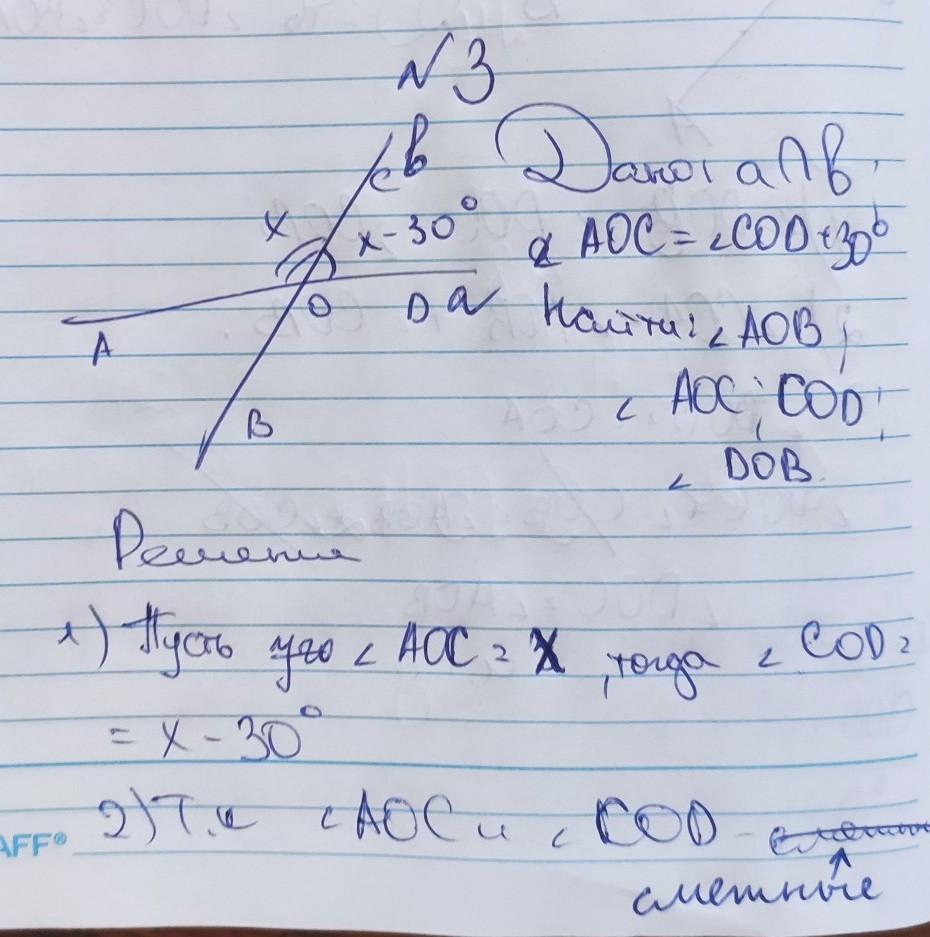 №3
Дано: a∩b;
∠AOC = ∠COD+30°
Найти: ∠AOB;
∠AOC; COD;
∠DOB.
C b
x x-30°
O D a
A
B
Решение
1) Пусть ∠AOC = x, тогда ∠COD =
= x - 30°
2) Т.к ∠AOC и ∠COD -
смежные
AFF®